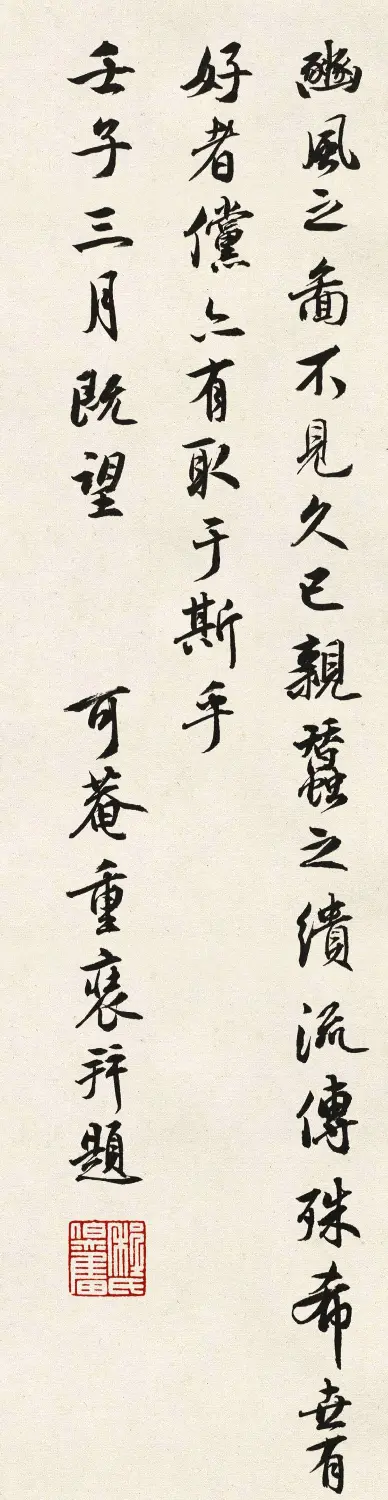 豳風之啚不見久已親蠶之繢流傳殊希世有
好者儻亦有取于斯乎
壬子三月既望 可菴重裝拜題